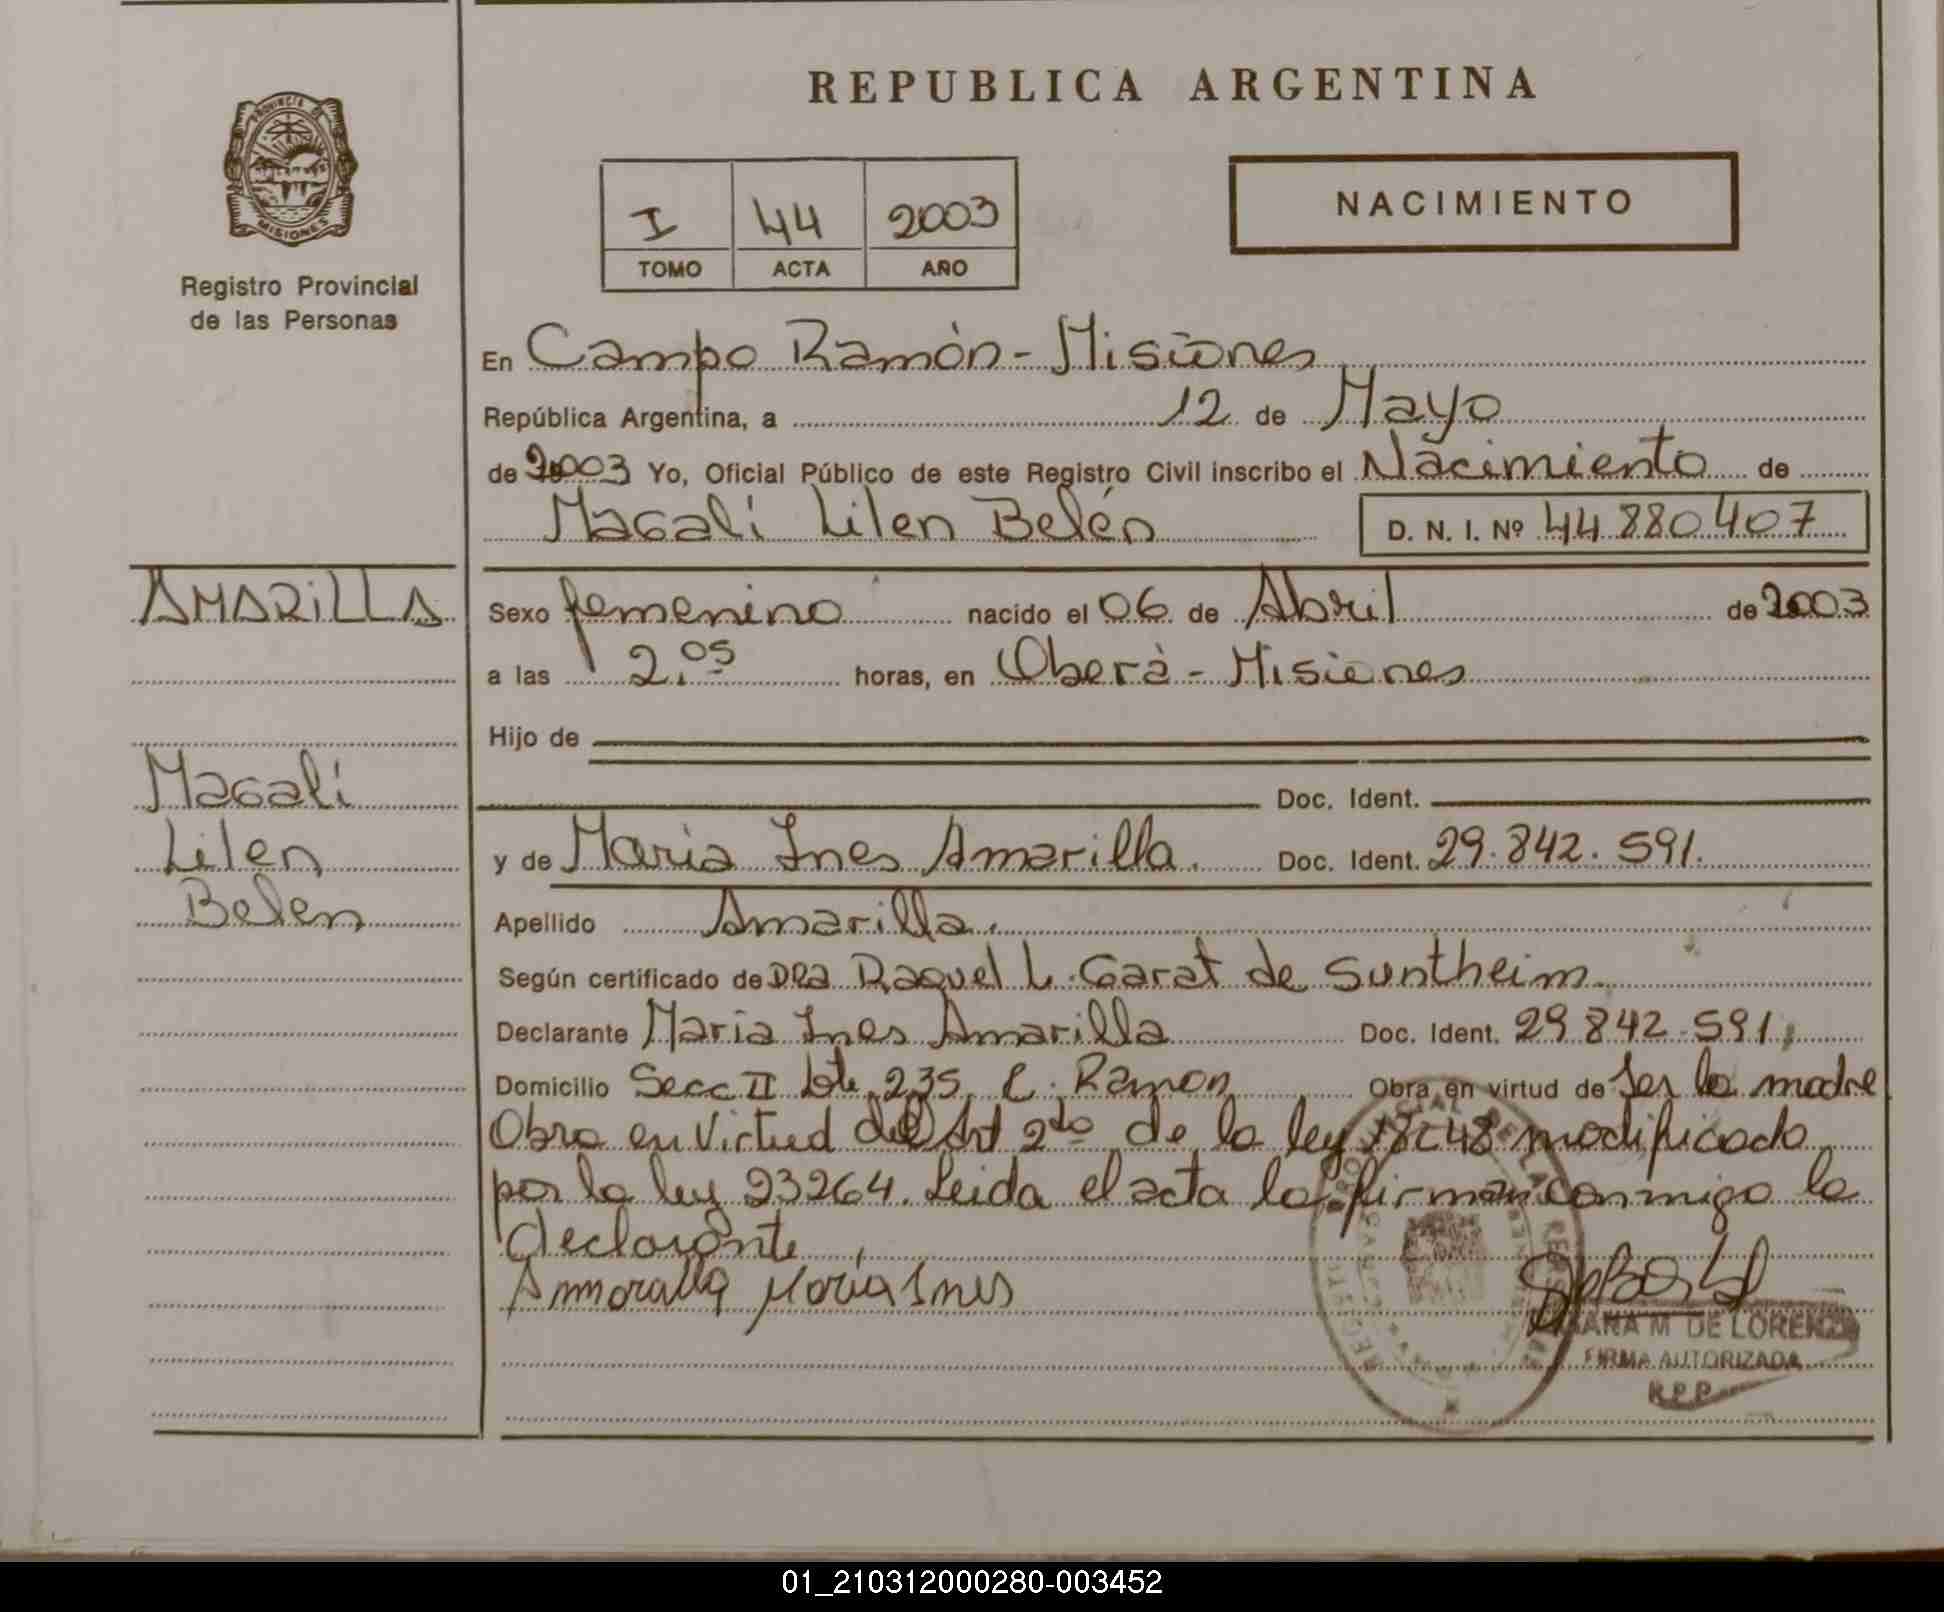 REPUBLICA ARGENTINA
PROVINCIA DE
MISIONES
Registro Provincial
de las Personas
I 44 2003
TOMO ACTA AÑO
NACIMIENTO
En Campo Ramón - Misiones
República Argentina, a 12 de Mayo
de 2003 Yo, Oficial Público de este Registro Civil inscribo el Nacimiento de
Magalí Lilen Belén D. N. I. Nº 44.880.407
AMARILLA
Sexo femenino nacido el 06 de Abril de 2003
a las 2.05 horas, en Oberá - Misiones
Hijo de
Doc. Ident.
Magalí
Lilen
Belen
y de Maria Ines Amarilla. Doc. Ident. 29.842.591.
Apellido Amarilla.
Según certificado de Dra Raquel L. Garat de Suntheim
Declarante Maria Ines Amarilla Doc. Ident. 29.842.591,
Domicilio Secc II Lote 235 C. Ramon Obra en virtud de Ser la madre
Obra en Virtud del Art 2do de la ley 18248 modificado
por la ley 23264. Leida el acta la firman conmigo la
declarante
Ammoralla Maria Ines
M DE LORENZO
FIRMA AUTORIZADA
R.P.P.
01_210312000280-003452